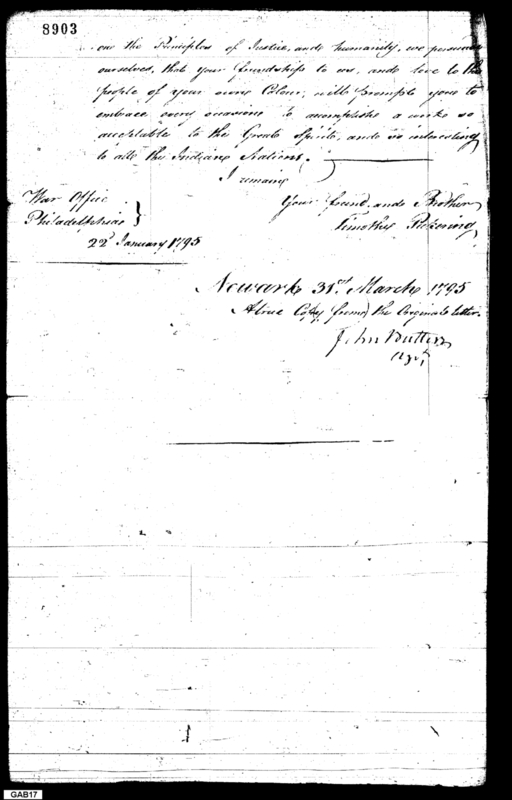 8903
on the Principles of Justice, and humanity, we persuade
ourselves, that your friendship to us, and love to the
people of your own Colour, will prompt you to
embrace every occasion to accomplish a work so
acceptable to the Great Spirit, and so interesting
to all the Indian Nations.
I remain
Your friend and Brother
Timothy Pickering
War Office
Philadelphia }
22d January 1795
Newark 31st March 1795
A true Copy from the Original letter.
John Butler
Agt
GAB17